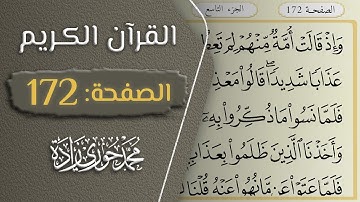 القرآن الكريم
الصفحة: 172
محمد حوري زادة
الصفحة 172
الجزء التاسع
وَإِذْ قَالَتْ أُمَّةٌ مِّنْهُمْ لِمَ
عَذَابًا شَدِيدًا ۖ قَالُوا
فَلَمَّا نَسُوا مَا ذُكِّرُوا بِهِ
وَأَخَذْنَا الَّذِينَ ظَلَمُوا بِعَذَابٍ
فَلَمَّا عَتَوْا عَن مَّا نُهُوا عَنْهُ قُلْنَا